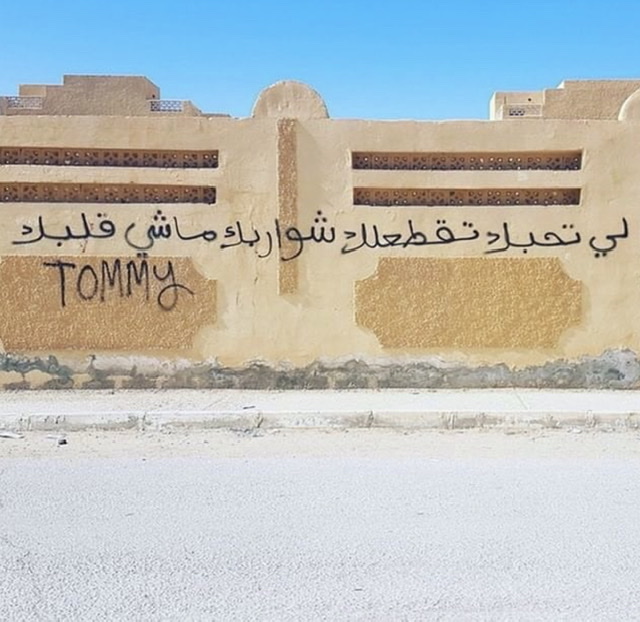 لي تحبك تقطعلك شواربك ماشي قلبك
TOMMY